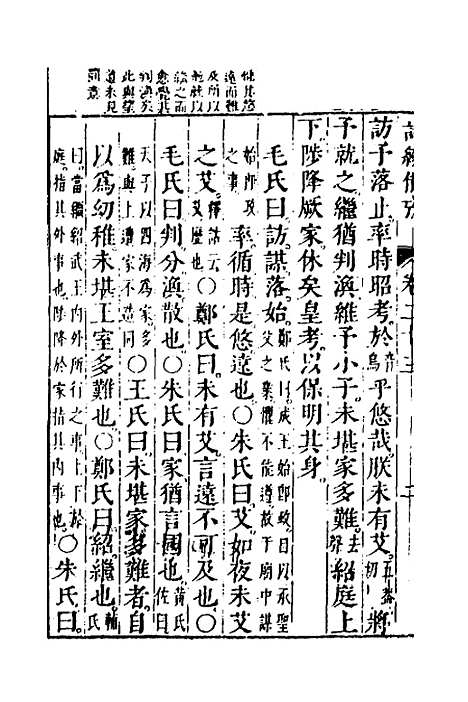 詩經備考 卷二十三
訪予落止率時昭考於音烏乎悠哉朕未有艾五蓋切將
予就之繼猶判渙維予小子未堪家多難去聲紹庭上
下陟降厥家休矣皇考以保明其身
毛氏曰訪謀落始鄭氏曰成王始即政自以承聖父之業懼不能遵故于廟中謀
始即政之事率循時是悠遠也○朱氏曰艾如夜未艾
之艾釋詁云艾歷也○鄭氏曰未有艾言遠不可及也○
毛氏曰判分渙散也○朱氏曰家猶言國也黃氏佐曰
天子以四海為家多難與上遭家不造同○王氏曰未堪家多難者自
以為幼稚未堪王室多難也○鄭氏曰紹繼也輔氏
曰當繼紹武王内外所行之事上下於庭指其外事也陟降於家指其内事也○朱氏曰
使其悠
遠而難
及所以
就之而
愈覺其
判渙矣
此與望
道未見
同意